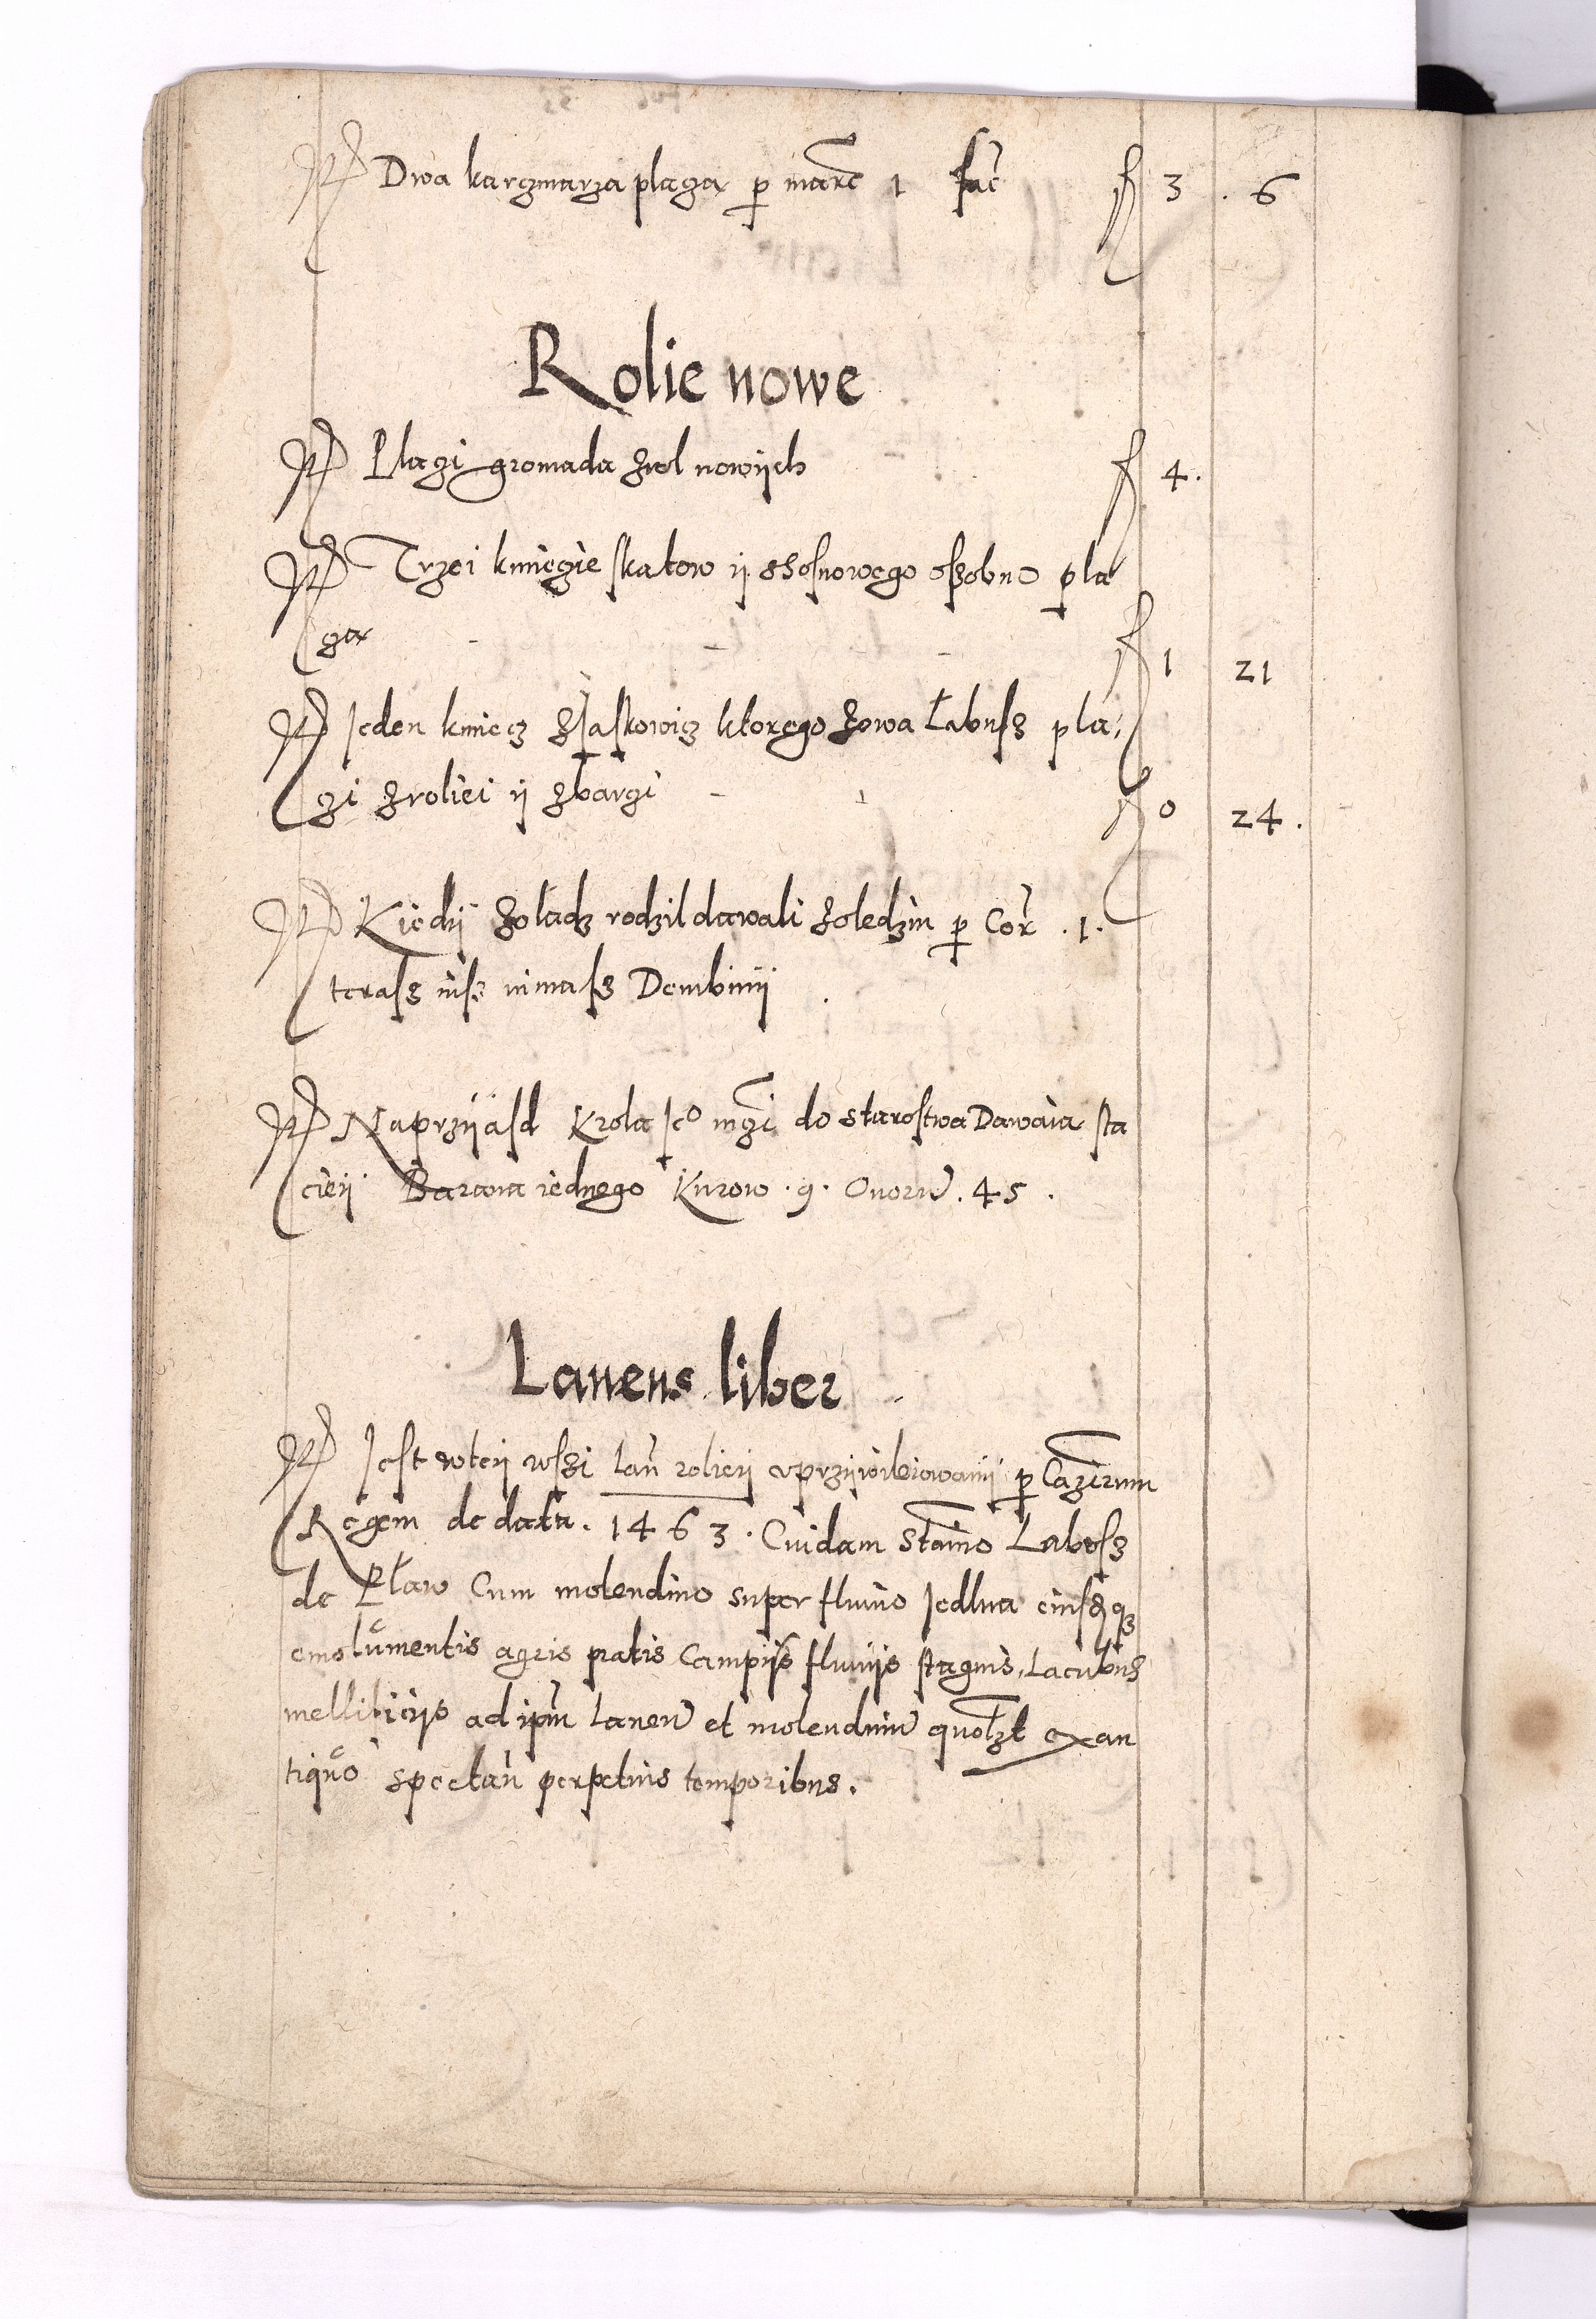 Itẽ Dwa karczmarza placza p marc̃ 1 fac̃ fl 3 . 6
Rolie nowe
Itẽ Placzi gromada zrol nowijch fl 4.
Itẽ Trzei kmieczie skatow ij shosnowego oszobno pla
cza fl 1 21
Itẽ Jeden kmiecz zJaskowicz ktorego zowa Łabusz pla,
czi zroliei ij zbarczi fl 0 24.
Itẽ Kiedij zoladz rodzil dawali zoledzin p Cor̃ .1.
terasz iusz nimasz Dembinij
Itẽ Naprzijasd Krola Jeº mczi do starostwa Dawaia sta
cieij Barana iednego Kurow .9. Ovorũ .45.
Laneus liber
Itẽ Jest wteij wszi Lañ rolieij vprzijwileiowanij p Cazirum
Regem de data. 1463. Cuidam Stanño Labosz
de Pław Cum molendino super fluuio Jedlna eiusqȝ
emolumentis agris pratis Campijs fluuijs stagnis, Lacubus
mellificijs ad ipm̃ Laneũ et molendinũ quolzt exan
tiquo spectañ perpetuis temporibus.